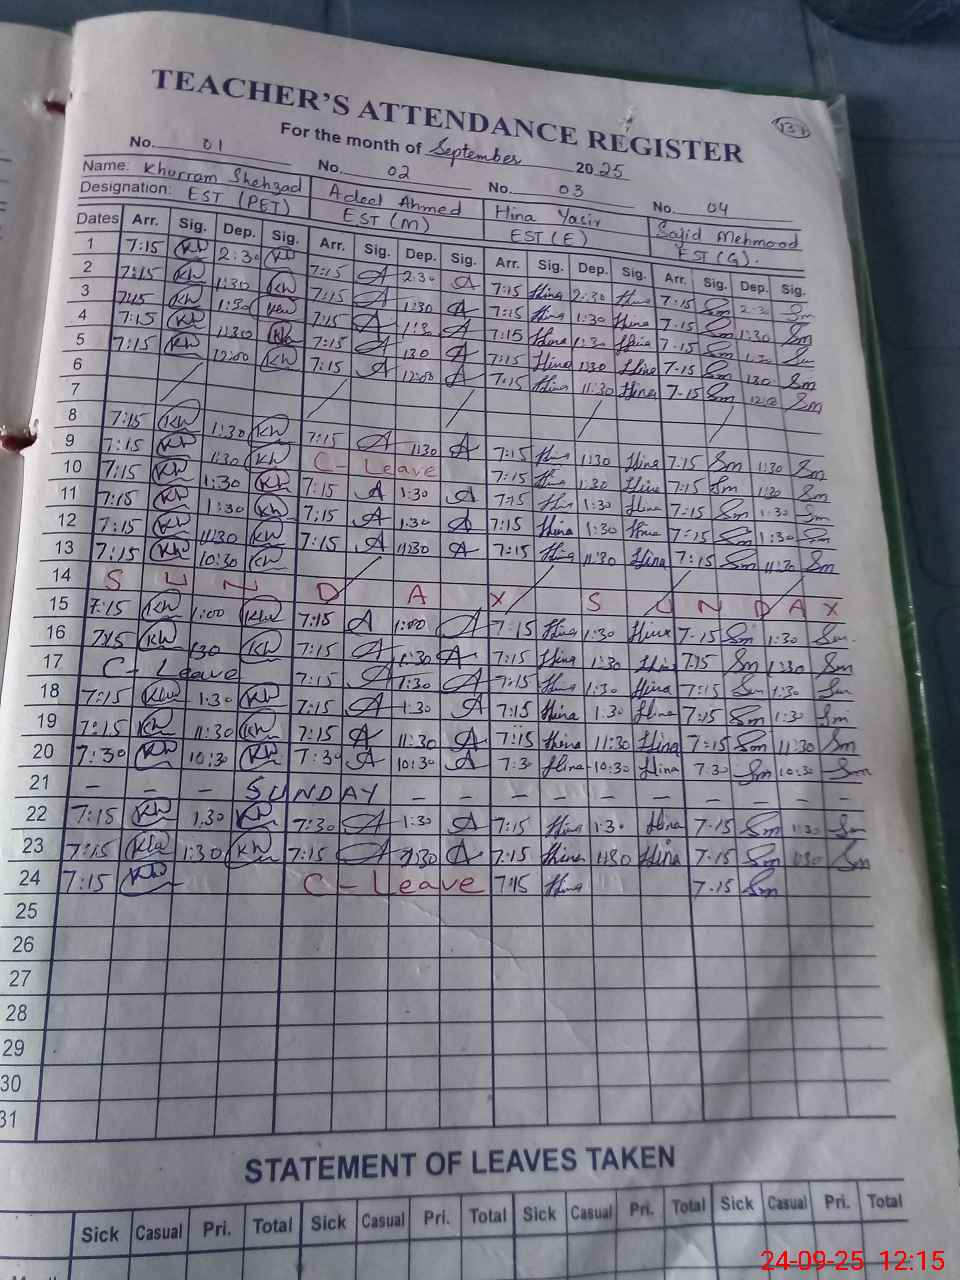 TEACHER'S ATTENDANCE REGISTER
For the month of September 2025
No. 01 No. 02 No. 03 No. 04
Name: Khurram Shehzad Adeel Ahmed Hina Yasir Sajid Mehmood
Designation: EST (PET) EST (M) EST (E) EST (G).
Dates Arr. Sig. Dep. Sig. Arr. Sig. Dep. Sig. Arr. Sig. Dep. Sig. Arr. Sig. Dep. Sig.
1 7:15 KW 2:30 KW 7:15 A 2:30 A 7:15 Hina 2:30 Hina 7:15 Sm 2:30 Sm
2 7:15 KW 1:30 KW 7:15 A 1:30 A 7:15 Hina 1:30 Hina 7-15 Sm 1:30 Sm
3 7:15 KW 1:30 KW 7:15 A 1:30 A 7:15 Hina 1:30 Hina 7-15 Sm 1:30 Sm
4 7:15 KW 1:30 7:15 A 130 A 7:15 Hina 130 Hina 7-15 Sm 130 Sm
5 7:15 KW 12:00 KW 7:15 A 12:00 A 7:15 Hina 11:30 Hina 7-15 Sm Sm
6
7
8 7:15 KW 1:30 KW 7:15 A 1130 A 7:15 Hina 1130 Hina 7-15 Sm 1:30 Sm
9 7:15 KW 1:30 KW C-Leave 7:15 Hina 1:30 Hina 7:15 Sm 1:30 Sm
10 7:15 KW 1:30 KW 7:15 A 1:30 A 7:15 Hina 1:30 Hina 7:15 Sm 1:30 Sm
11 7:15 KW 1:30 KW 7:15 A 1:30 A 7:15 Hina 1:30 Hina 7:15 Sm 1:30 Sm
12 7:15 KW 11:30 KW 7:15 A 11:30 A 7:15 Hina 11:30 Hina 7:15 Sm 11:30 Sm
13 7:15 KW 10:30 KW
14 S U N D A Y S U N D A Y
15 7:15 KW 1:00 KW 7:15 A 1:00 A 7:15 Hina 1:30 Hina 7-15 Sm 1:30 Sm
16 7:15 KW 130 KW 7:15 A 1:30 A 7:15 Hina 1:30 Hina 7:15 Sm 1:30 Sm
17 C-Leave 7:15 A 1:30 A 7:15 Hina 1:30 Hina 7:15 Sm 1:30 Sm
18 7:15 KW 1:30 KW 7:15 A 1:30 A 7:15 Hina 1:30 Hina 7:15 Sm 1:30 Sm
19 7:15 KW 11:30 KW 7:15 A 11:30 A 7:15 Hina 11:30 Hina 7:15 Sm 11:30 Sm
20 7:30 KW 10:30 KW 7:30 A 10:30 A 7:30 Hina 10:30 Hina 7:30 Sm 10:30 Sm
21 – – – SUNDAY – – – – – – – – – –
22 7:15 KW 1:30 KW 7:30 A 1:30 A 7:15 Hina 1:30 Hina 7-15 Sm 1:30 Sm
23 7:15 KW 1:30 KW 7:15 A 1:30 A 7:15 Hina 1:30 Hina 7-15 Sm 1:30 Sm
24 7:15 KW C-Leave 7:15 Hina 7-15 Sm
25
26
27
28
29
30
31
STATEMENT OF LEAVES TAKEN
Sick Casual Pri. Total Sick Casual Pri. Total Sick Casual Pri. Total Sick Casual Pri. Total
24-09-25 12:15